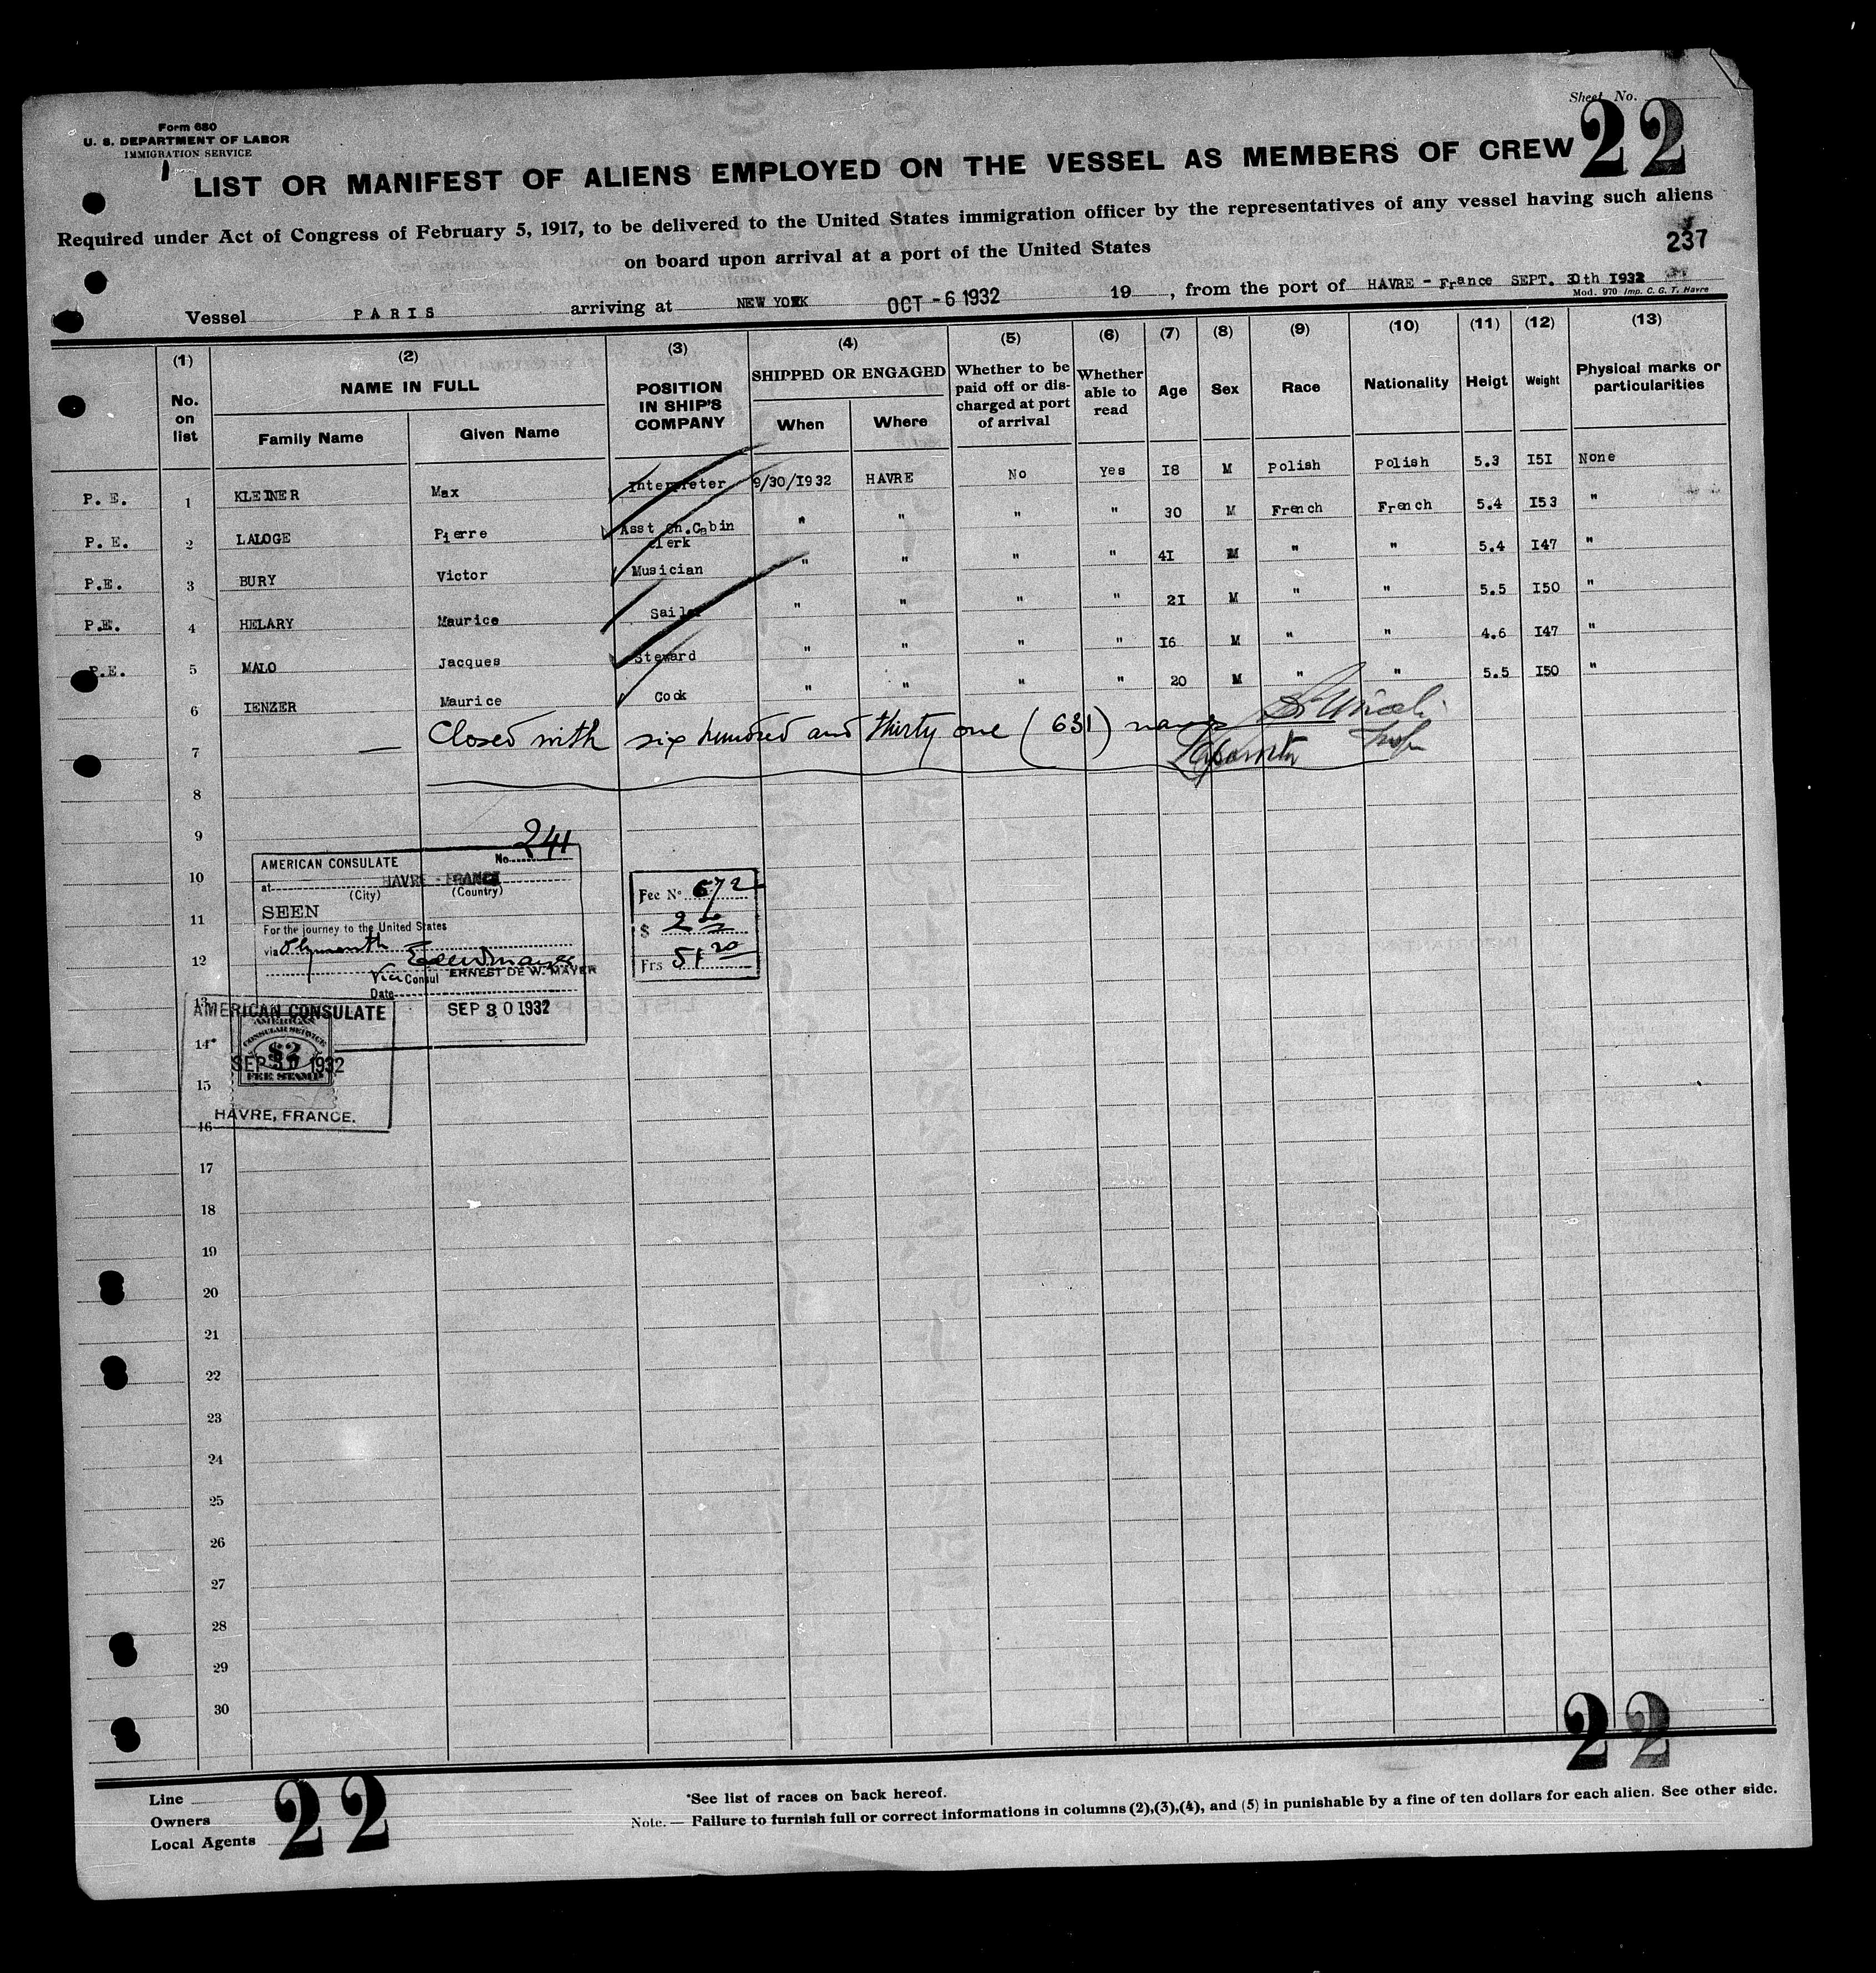 Sheet No.
22
Form 680
U. S. DEPARTMENT OF LABOR
IMMIGRATION SERVICE
LIST OR MANIFEST OF ALIENS EMPLOYED ON THE VESSEL AS MEMBERS OF CREW
Required under Act of Congress of February 5, 1917, to be delivered to the United States immigration officer by the representatives of any vessel having such aliens
on board upon arrival at a port of the United States
237
Vessel PARIS arriving at NEW YORK OCT -6 1932 19 , from the port of HAVRE - France SEPT. 30th 1932
Mod. 970 Imp. C. G. T. Havre
(1) (2) (3) (4) (5) (6) (7) (8) (9) (10) (11) (12) (13)
No. on list NAME IN FULL POSITION IN SHIP'S COMPANY SHIPPED OR ENGAGED Whether to be paid off or discharged at port of arrival Whether able to read Age Sex Race Nationality Heigt Weight Physical marks or particularities
Family Name Given Name When Where
P. E. 1 KLEINER Max Interpreter 9/30/1932 HAVRE No Yes 18 M Polish Polish 5.3 151 None
P. E. 2 LALOGE Pierre Asst Ch.Cabin Clerk " " " " 30 M French French 5.4 153 "
P.E. 3 BURY Victor Musician " " " " 41 M " " 5.4 147 "
P.E. 4 HELARY Maurice Sailor " " " " 21 M " " 5.5 150 "
P.E. 5 MALO Jacques Steward " " " " 16 M " " 4.6 147 "
6 IENZER Maurice Cook " " " " 20 M " " 5.5 150 "
7 — Closed with six hundred and thirty one (631) names
8
9
10
11
12
13
14
15
16
17
18
19
20
21
22
23
24
25
26
27
28
29
30
AMERICAN CONSULATE No. 241
at HAVRE - FRANCE
(City) (Country)
SEEN
For the journey to the United States
via Plymouth
Vice Consul ERNEST DE W. MAYER
Date
SEP 30 1932
Fee No 672
$ 2 00
Frs 51 20
AMERICAN CONSULATE
AMERICAN
CONSULAR SERVICE
$2
FEE STAMP
SEP 30 1932
HAVRE, FRANCE.
22
Line
Owners
Local Agents
22
*See list of races on back hereof.
Note. — Failure to furnish full or correct informations in columns (2),(3),(4), and (5) in punishable by a fine of ten dollars for each alien. See other side.